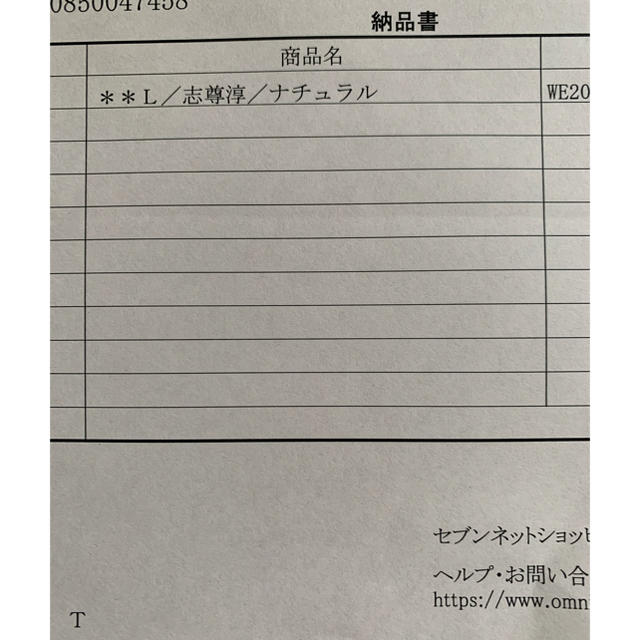 0850047458
納品書
商品名
＊＊Ｌ／志尊淳／ナチュラル WE20
セブンネットショッピ
ヘルプ・お問い合
https://www.omn
T